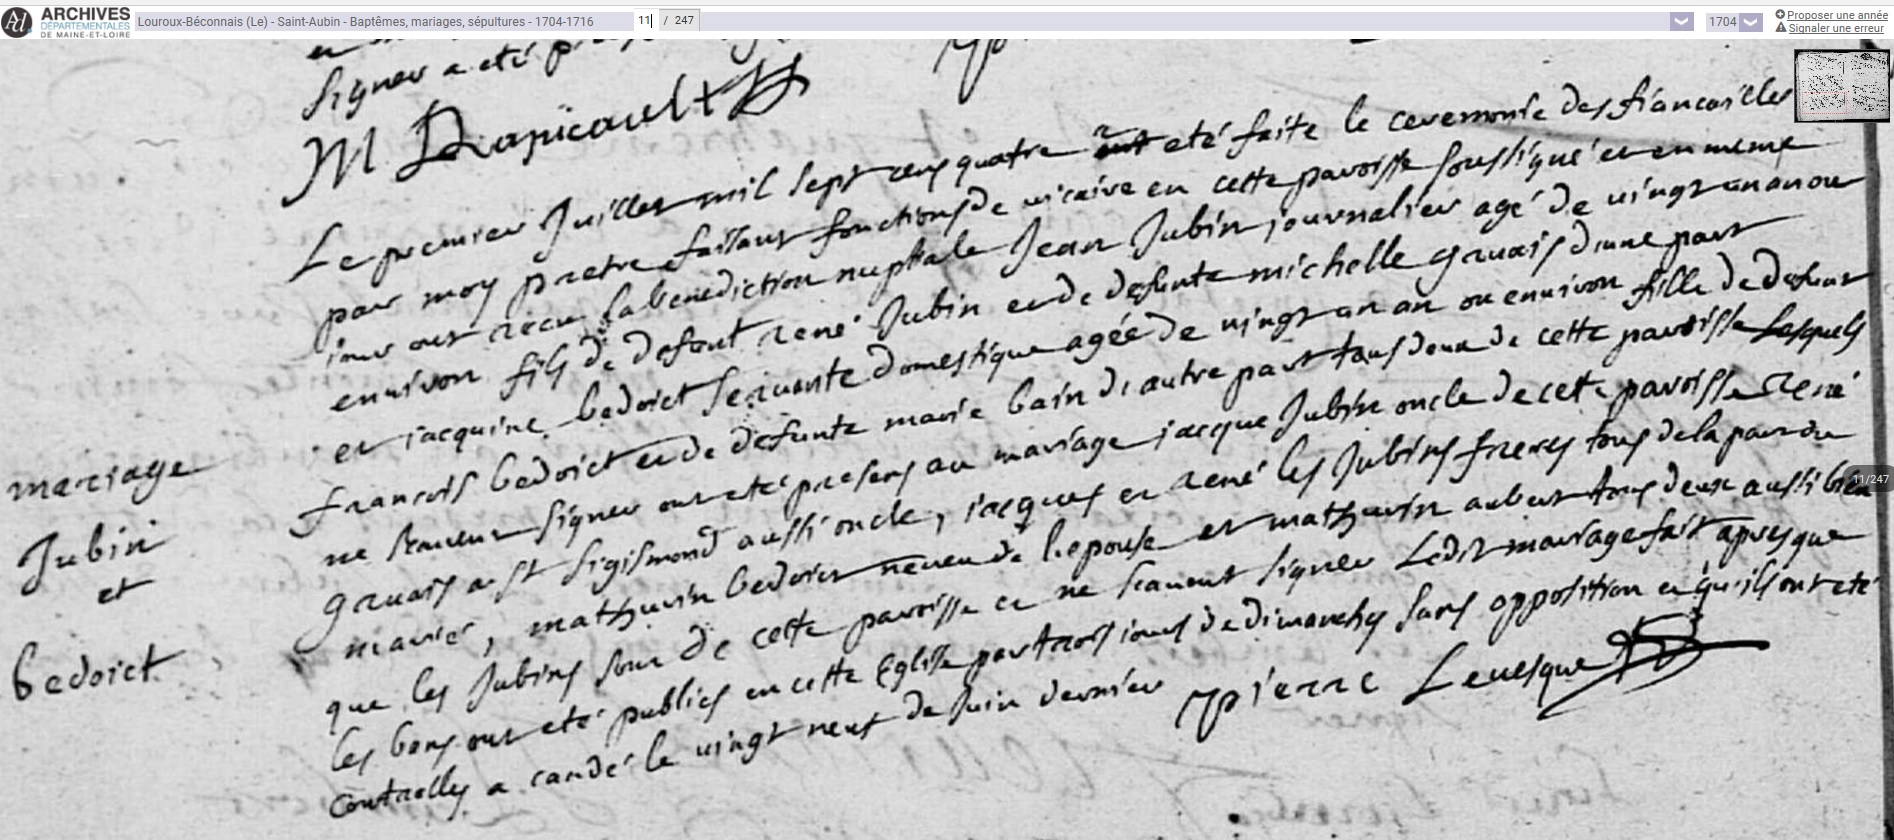 ARCHIVES
DÉPARTEMENTALES
DE MAINE-ET-LOIRE
Louroux-Béconnais (Le) - Saint-Aubin - Baptêmes, mariages, sépultures - 1704-1716
11 / 247
1704
Proposer une année
Signaler une erreur
signer a eté
M Drapicault
Le premier Juillet mil sept cens quatre a eté faite la ceremonie des fiancailles
par moy pretre faisant fonctions de vicaire en cette paroisse soussigné et en meme
iour ont receu la benediction nuptiale Jean Jubin journalier agé de vingt un an ou
environ fils de defunt rené Jubin et de defunte michelle gruais d une part
et iacquine bedoict servante domestique agée de vingt un an ou environ fille de defunt
francois bedoict et de defunte marie bain d autre part tous deux de cette paroisse Lesquels
ne scavent signer ont eté presens au mariage iacque Jubin oncle de cete paroisse René
gruais a st sigismond aussi oncle, iacques et rené les Jubins freres tous de la part du
marié, mathurin bedoict neveu de l epouse et mathurin aubert tous deux aussi bien
que les Jubins sont de cette paroisse et ne scavent signer Ledit mariage fait apres que
les bans ont eté publies en cette Eglise par trois iours de dimanches sans opposition et qu'ils ont eté
controlles a candé le vingt neuf de Juin dernier
Pierre Levesque
mariage
Jubin
et
bedoict
11/247